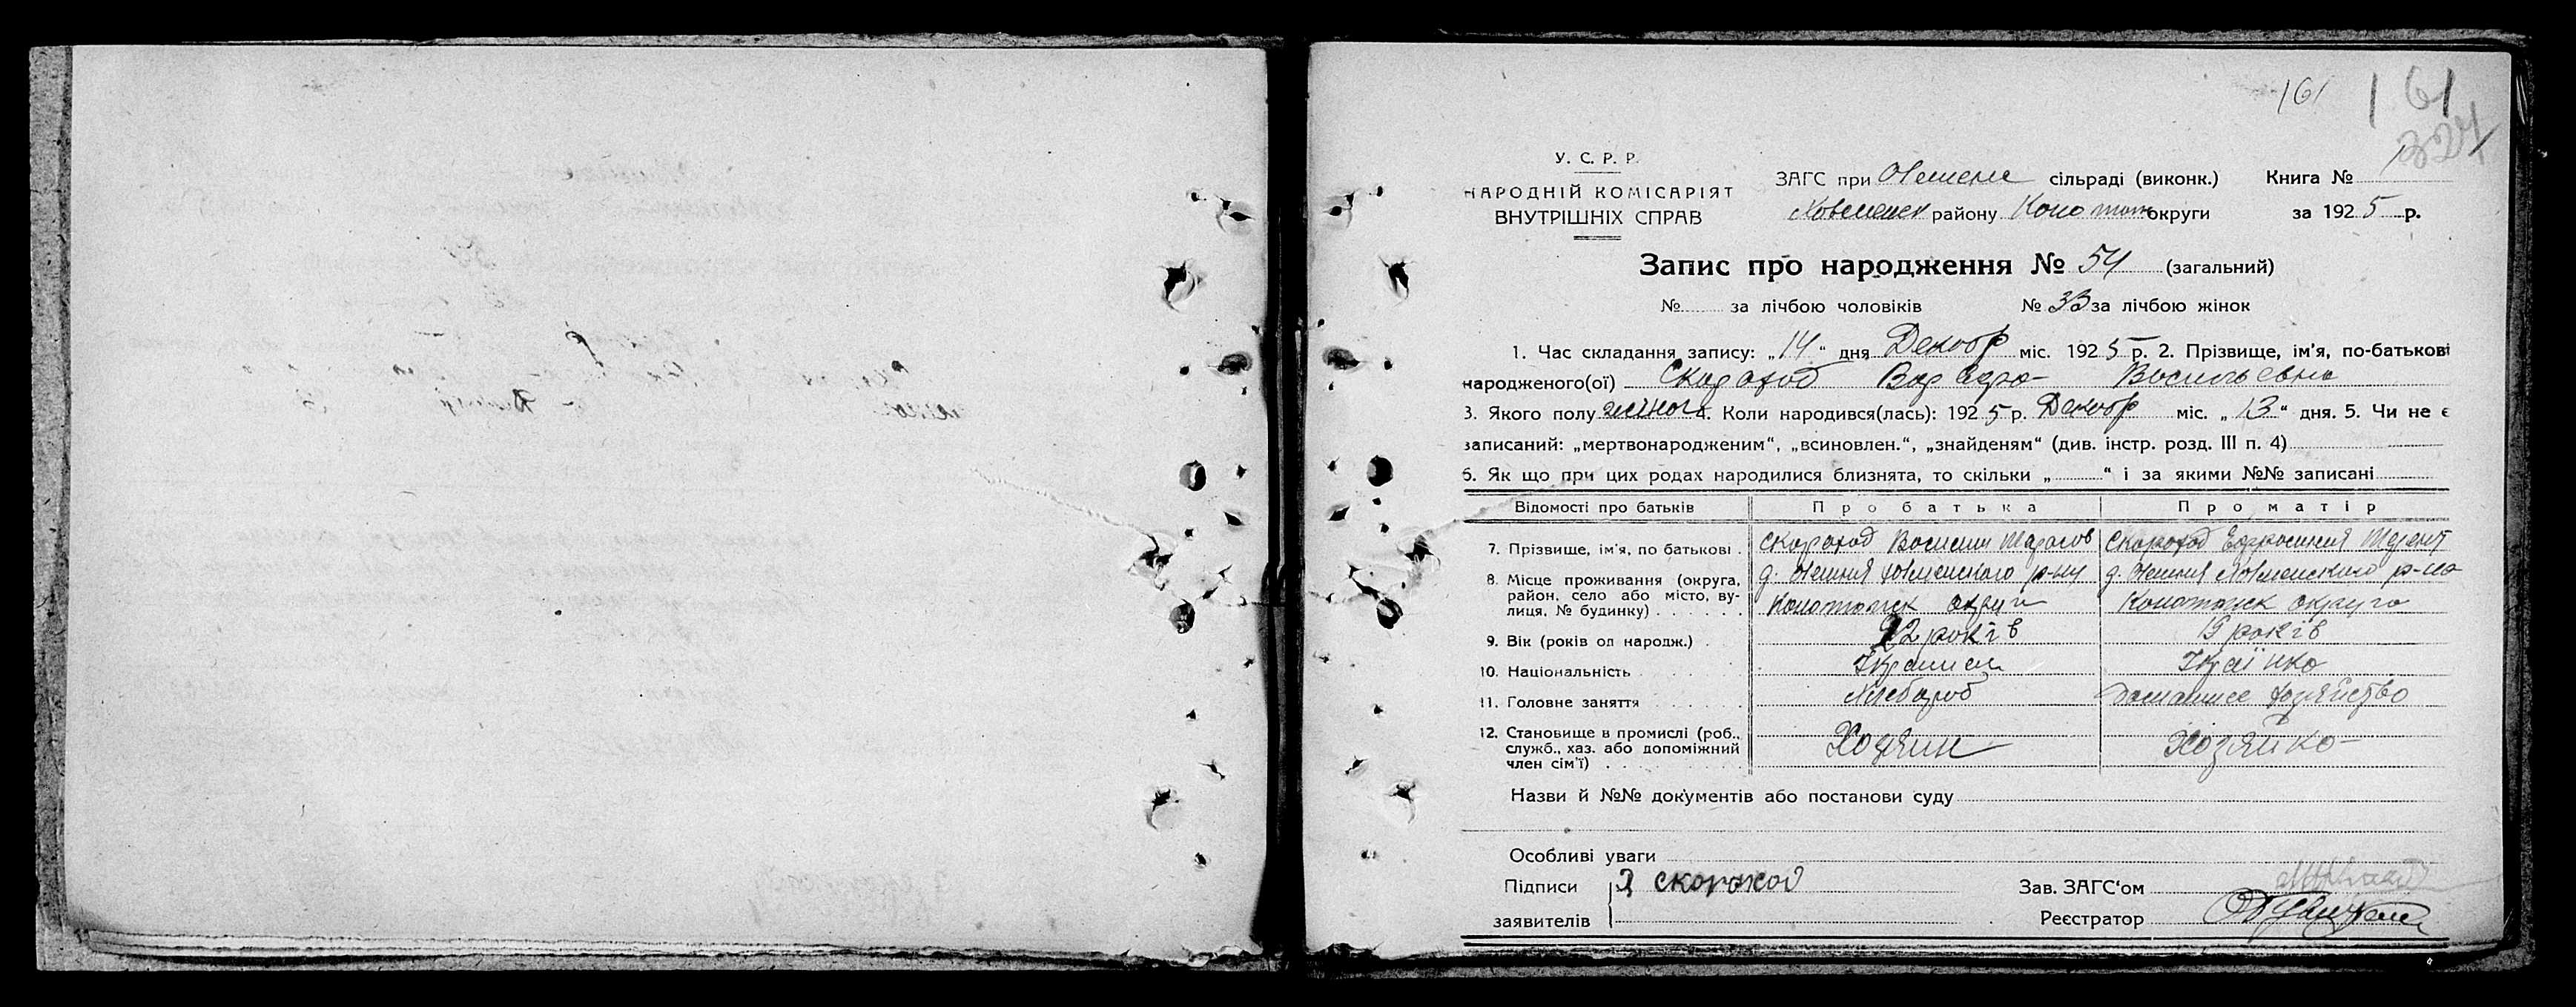 161 161
324
У. С. Р. Р.
НАРОДНІЙ КОМІСАРІЯТ
ВНУТРІШНІХ СПРАВ
ЗАГС при сільраді (виконк.) Книга №
району Конотоп округи за 1925 р.
Запис про народження № 54 (загальний)
№ за лічбою чоловіків № 33 за лічбою жінок
1. Час складання запису: „14“ дня Декабр міс. 1925 р. 2. Прізвище, ім'я, по-батькові
народженого(ої) Скороход Варвара Васильевна
3. Якого полу жіног 4. Коли народився(лась): 1925 р. Декабр міс. „13“ дня. 5. Чи не є
записаний: „мертвонародженим“, „всиновлен.“, „знайденям“ (див. інстр. розд. III п. 4)
6. Як що при цих родах народилися близнята, то скільки „ “ і за якими №№ записані
Відомості про батьків Про батька Про матір
7. Прізвище, ім'я, по батькові Скороход Василий Тарасов Скороход Ефросиния Терент
8. Місце проживання (округа, район, село або місто, вулиця, № будинку)
Конотопск округи Конотопск округа
9. Вік (років од народж.) 22 років 19 років
10. Національність Українец Українка
11. Головне заняття Хлебороб Домашнее хозяйство
12. Становище в промислі (роб., служб., хаз. або допоміжний член сім'ї) Хозяин Хозяйка
Назви й №№ документів або постанови суду
Особливі уваги
Підписи Скороход Зав. ЗАГС'ом
заявителів Реєстратор